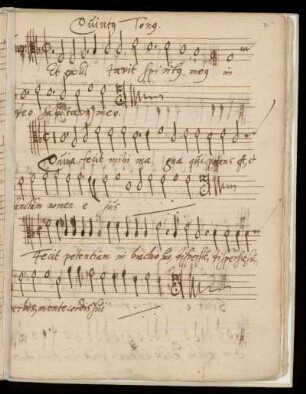 Quintus Tonus.
Et exul tavit Spiritus meus in
deo salutari meo.
Quia fecit mihi ma gna qui potens est, et
sanctum nomen e ius
Fecit potentiam in brachio suo, dispersit, dispersit,
mente cordis sui